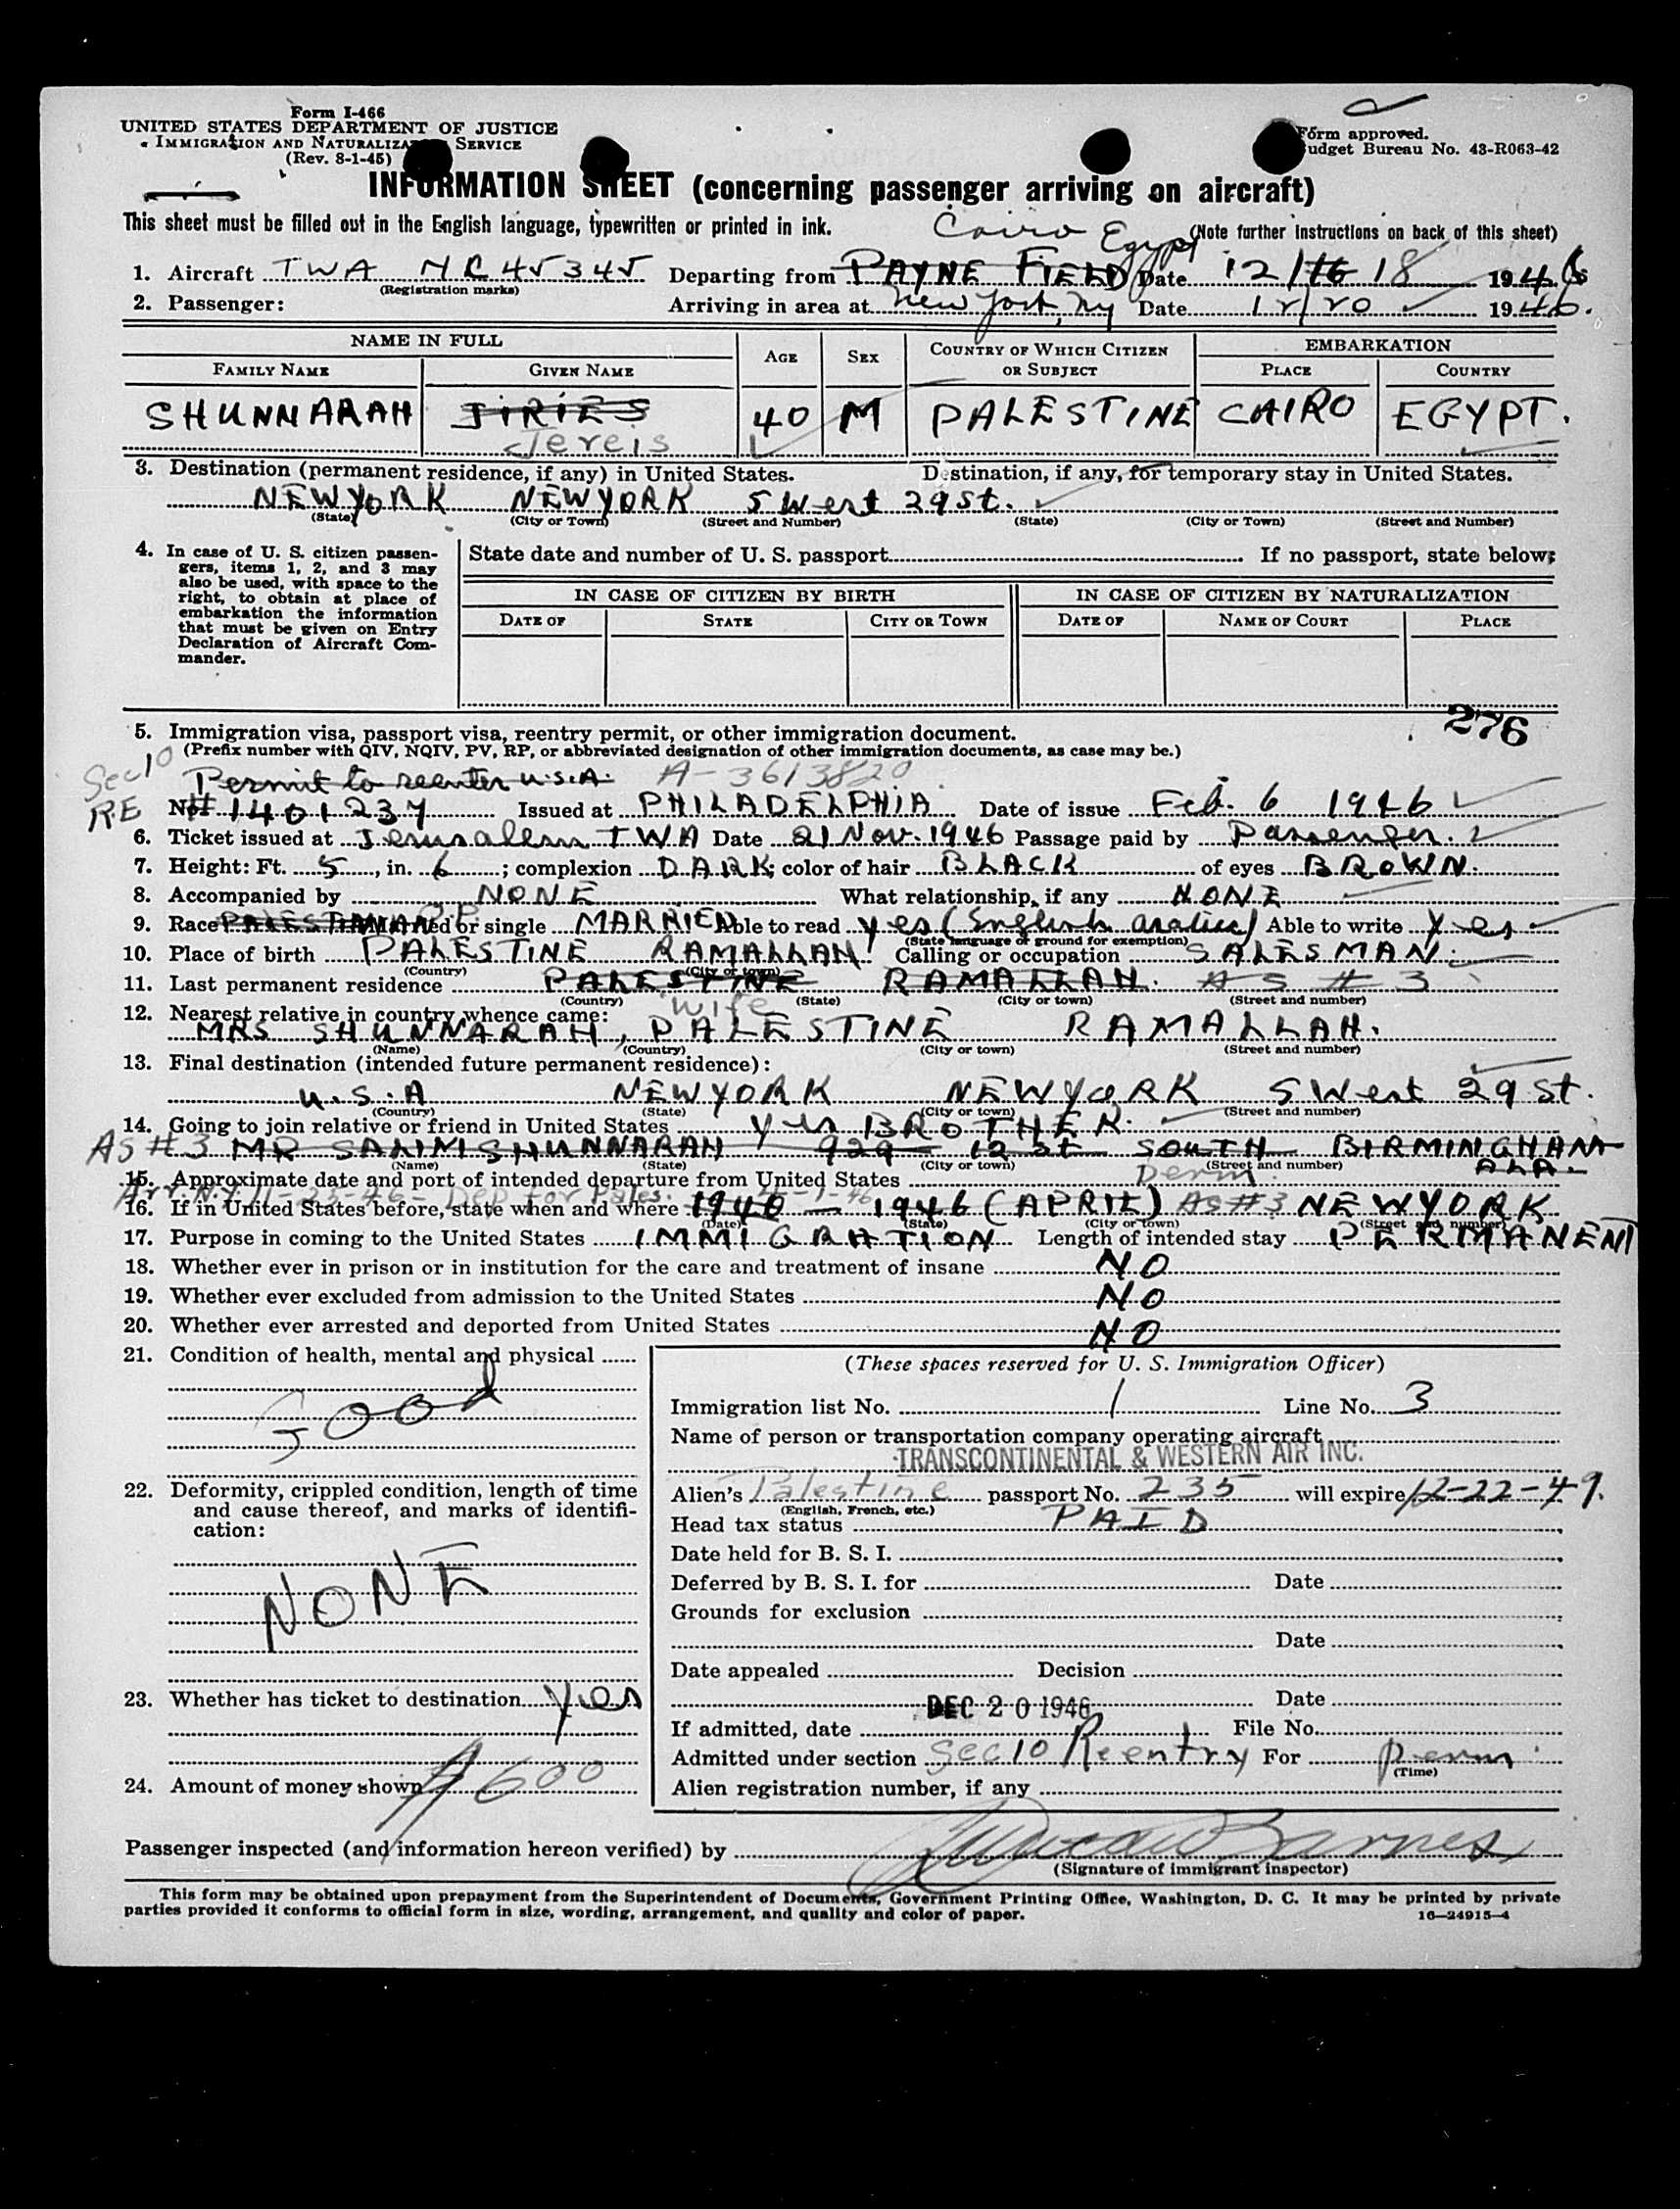 Form I-466
UNITED STATES DEPARTMENT OF JUSTICE
IMMIGRATION AND NATURALIZATION SERVICE
(Rev. 8-1-45)
Form approved.
Budget Bureau No. 43-R063-42
INFORMATION SHEET (concerning passenger arriving on aircraft)
This sheet must be filled out in the English language, typewritten or printed in ink.
(Note further instructions on back of this sheet)
Cairo Egypt
1. Aircraft TWA NC 45345 Departing from PAYNE FIELD Date 12/16 18 1946
(Registration marks)
2. Passenger: Arriving in area at New York, NY Date 12/20 1946.
NAME IN FULL AGE SEX COUNTRY OF WHICH CITIZEN OR SUBJECT EMBARKATION
FAMILY NAME GIVEN NAME PLACE COUNTRY
SHUNNARAH JIRIES 40 M PALESTINE CAIRO EGYPT.
Jereis
3. Destination (permanent residence, if any) in United States. Destination, if any, for temporary stay in United States.
NEW YORK NEW YORK 5 West 29 St.
(State) (City or Town) (Street and Number) (State) (City or Town) (Street and Number)
4. In case of U. S. citizen passengers, items 1, 2, and 3 may also be used, with space to the right, to obtain at place of embarkation the information that must be given on Entry Declaration of Aircraft Commander.
State date and number of U. S. passport If no passport, state below:
IN CASE OF CITIZEN BY BIRTH IN CASE OF CITIZEN BY NATURALIZATION
DATE OF STATE CITY OR TOWN DATE OF NAME OF COURT PLACE
276
5. Immigration visa, passport visa, reentry permit, or other immigration document.
(Prefix number with QIV, NQIV, PV, RP, or abbreviated designation of other immigration documents, as case may be.)
Sec 10 Permit to reenter U.S.A. A-3613820
RE No. # 1401237 Issued at PHILADELPHIA Date of issue Feb. 6 1946
6. Ticket issued at Jerusalem TWA Date 21 Nov. 1946 Passage paid by Passenger.
7. Height: Ft. 5, in. 6; complexion DARK; color of hair BLACK of eyes BROWN.
8. Accompanied by NONE What relationship, if any NONE
9. Race Married or single MARRIED Able to read yes (English arabic) Able to write yes
(State language or ground for exemption)
10. Place of birth PALESTINE RAMALLAH. Calling or occupation SALESMAN.
(Country) (City or town)
11. Last permanent residence PALESTINE RAMALLAH. AS # 3
(Country) (State) (City or town) (Street and number)
12. Nearest relative in country whence came: wife
MRS SHUNNARAH, PALESTINE RAMALLAH.
(Name) (Country) (City or town) (Street and number)
13. Final destination (intended future permanent residence):
U.S.A NEW YORK NEW YORK 5 West 29 St.
(Country) (State) (City or town) (Street and number)
14. Going to join relative or friend in United States yes BROTHER.
As # 3 MR SALIM SHUNNARAH 929 12 St SOUTH BIRMINGHAM
(Name) (State) (City or town) (Street and number)
ALA.
15. Approximate date and port of intended departure from United States Perm.
Arr. N.Y. 11-23-46 - Dep for Pales. 4-1-46
16. If in United States before, state when and where 1940 — 1946 (APRIL) AS #3 NEW YORK
(Date) (State) (City or town) (Street and number)
17. Purpose in coming to the United States IMMIGRATION Length of intended stay PERMANENT
18. Whether ever in prison or in institution for the care and treatment of insane NO
19. Whether ever excluded from admission to the United States NO
20. Whether ever arrested and deported from United States NO
21. Condition of health, mental and physical
Good
22. Deformity, crippled condition, length of time and cause thereof, and marks of identification:
NONE
23. Whether has ticket to destination Yes
24. Amount of money shown $ 600
(These spaces reserved for U. S. Immigration Officer)
Immigration list No. 1 Line No. 3
Name of person or transportation company operating aircraft
TRANSCONTINENTAL & WESTERN AIR INC.
Alien's Palestine passport No. 235 will expire 12-22-49.
(English, French, etc.)
Head tax status PAID
Date held for B. S. I.
Deferred by B. S. I. for Date
Grounds for exclusion
Date
Date appealed Decision
Date
If admitted, date DEC 20 1946 File No.
Admitted under section Sec 10 Reentry For perm
(Time)
Alien registration number, if any
Passenger inspected (and information hereon verified) by Barnes
(Signature of immigrant inspector)
This form may be obtained upon prepayment from the Superintendent of Documents, Government Printing Office, Washington, D. C. It may be printed by private
parties provided it conforms to official form in size, wording, arrangement, and quality and color of paper.
16—24915-4